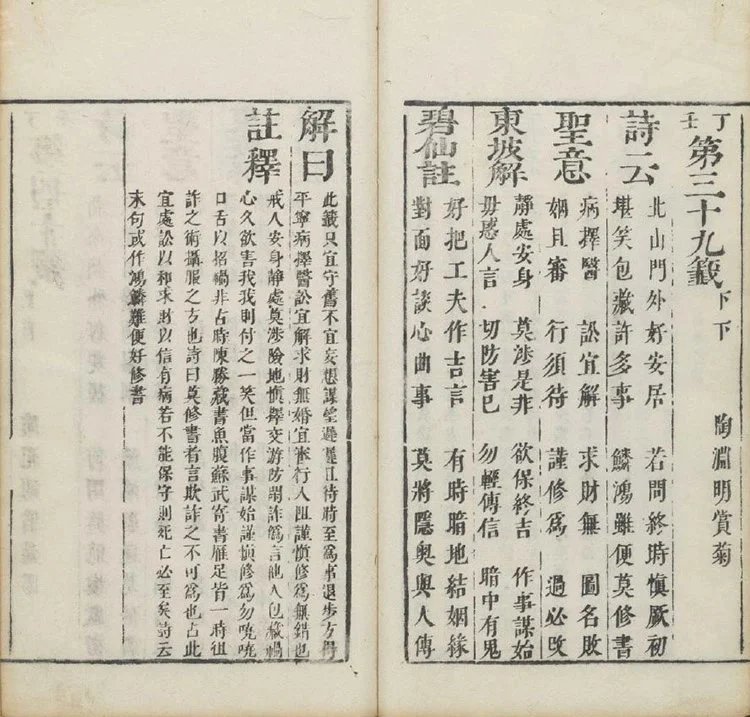 丁壬 第三十九籤 下下 陶淵明賞菊
詩云
北山門外好安居 若問終時慎厥初
堪笑包藏許多事 鱗鴻雖便莫修書
聖意
病擇醫 訟宜解 求財無 圖名敗
姻且審 行須待 謹修為 過必改
東坡解
靜處安身 莫涉是非 欲保終吉 作事謀始
毋惑人言 切防害己 勿輕傳信 暗中有鬼
碧仙註
好把工夫作吉言 有時暗地結姻緣
對面好談心曲事 莫將隱奧與人傳
解曰
此籤只宜守舊不宜妄想謀望遲遲且待時至為事退步方得
平寧病擇醫訟宜解求財無婚宜行人阻謹慎修為無錯也
註釋
戒人安身靜處莫涉險地慎擇交游防詐為言他人包藏禍
心久欲害我我則付之一笑但當作事謀始謹慎修為勿嘵嘵
口舌以招禍非占時陳勝藏書魚腹蘇武寄書雁足皆一時徂
詐之術攝服之方也詩曰莫修書者言欺詐之不可為也占此
宜處訟以和求財以信有病若不能保守則死亡必至矣詩云
末句或作鴻鱗難便好修書